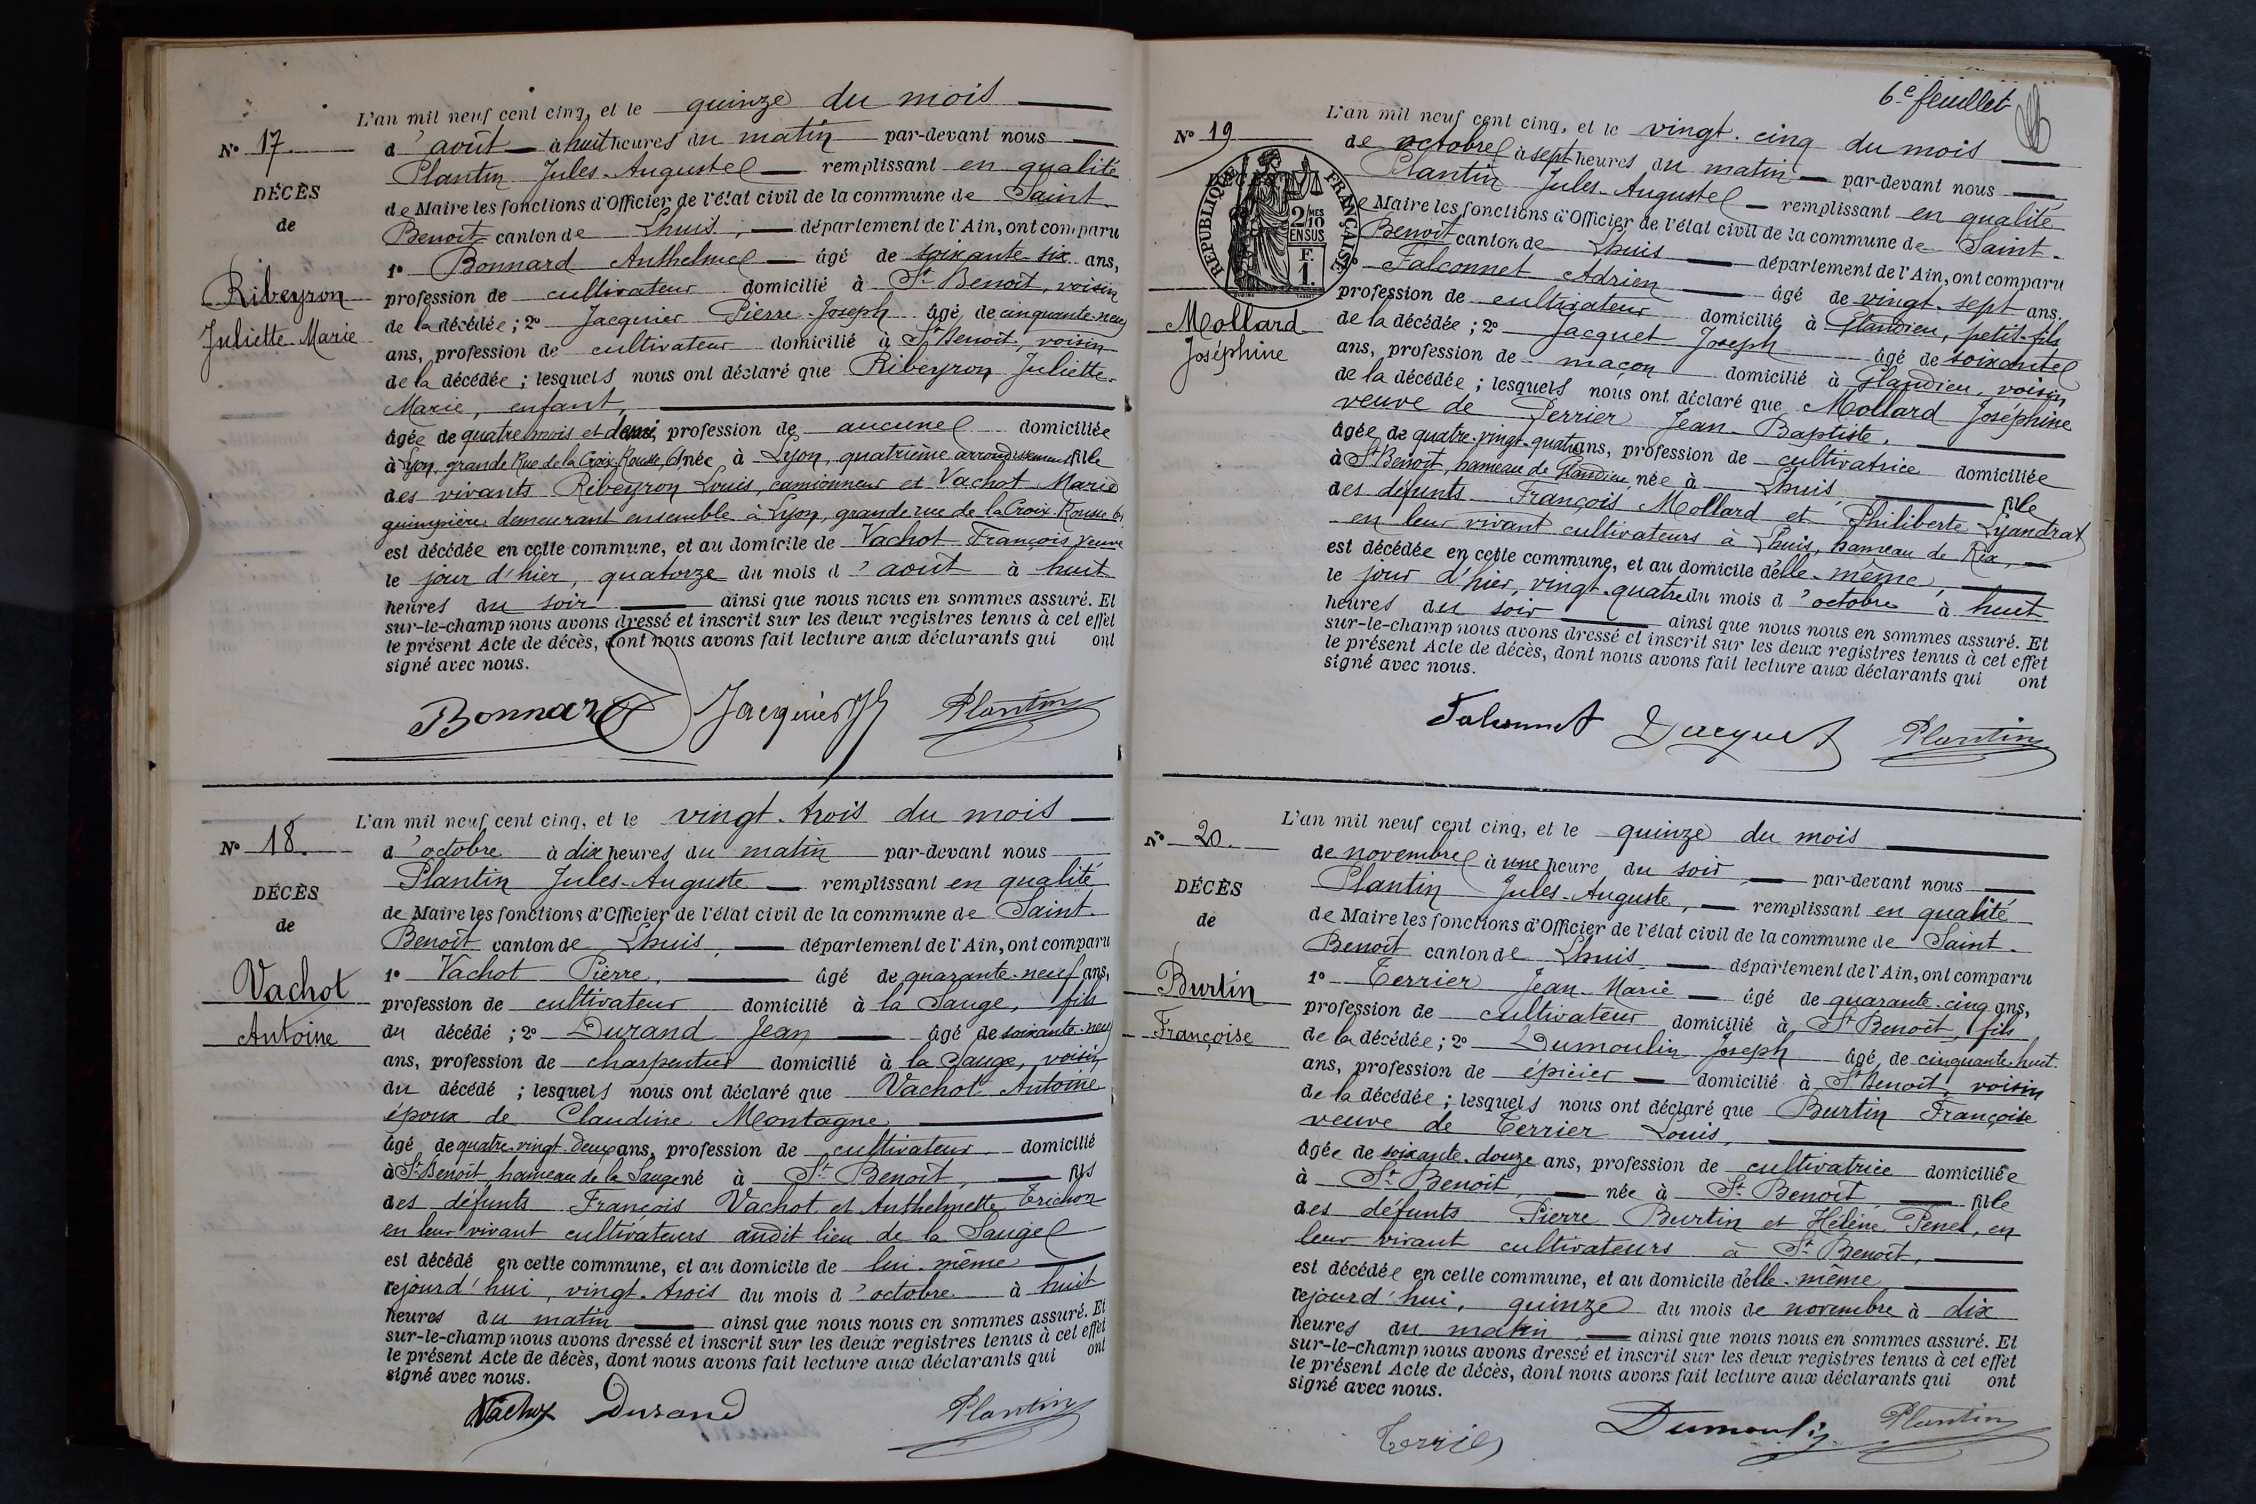 L'an mil neuf cent cinq, et le quinze du mois
N° 17. d'août à huit heures du matin par-devant nous
Plantin Jules-Auguste remplissant en qualité
DÉCÈS
de Maire les fonctions d'Officier de l'état civil de la commune de Saint-
de
Benoit canton de Lhuis, département de l'Ain, ont comparu
1° Bonnard Anthelme âgé de soixante-six ans,
Ribeyron
profession de cultivateur domicilié à St Benoit, voisin
Juliette Marie
de la décédée ; 2° Jacquier Pierre-Joseph âgé de cinquante-neuf
ans, profession de cultivateur domicilié à St Benoit, voisin
de la décédée ; lesquels nous ont déclaré que Ribeyron Juliette-
Marie, enfant,
âgée de quatre mois et demi, profession de aucune domiciliée
à Lyon, grande Rue de la Croix-Rousse, née à Lyon, quatrième arrondissement fille
des vivants Ribeyron Louis, camionneur et Vachot Marie
guimpière, demeurant ensemble à Lyon, grande rue de la Croix-Rousse
est décédée en cette commune, et au domicile de Vachot François
le jour d'hier, quatorze du mois d'août à huit
heures du soir ainsi que nous nous en sommes assuré. Et
sur-le-champ nous avons dressé et inscrit sur les deux registres tenus à cet effet
le présent Acte de décès, dont nous avons fait lecture aux déclarants qui ont
signé avec nous.
Bonnard Jacquier Plantin
L'an mil neuf cent cinq, et le vingt-trois du mois
N° 18. d'octobre à dix heures du matin par-devant nous
Plantin Jules-Auguste remplissant en qualité
DÉCÈS
de Maire les fonctions d'Officier de l'état civil de la commune de Saint-
de
Benoit canton de Lhuis, département de l'Ain, ont comparu
1° Vachot Pierre, âgé de quarante-neuf ans,
Vachot
profession de cultivateur domicilié à la Sauge, fils
Antoine
du décédé ; 2° Durand Jean âgé de soixante-neuf
ans, profession de charpentier domicilié à la Sauge, voisin
du décédé ; lesquels nous ont déclaré que Vachot Antoine
époux de Claudine Montagne
âgé de quatre-vingt-deux ans, profession de cultivateur domicilié
à St Benoit, hameau de la Sauge né à St Benoit, fils
des défunts François Vachot et Anthelmette Trichon
en leur vivant cultivateurs audit lieu de la Sauge
est décédé en cette commune, et au domicile de lui-même
cejourd'hui, vingt-trois du mois d'octobre à huit
heures du matin ainsi que nous nous en sommes assuré. Et
sur-le-champ nous avons dressé et inscrit sur les deux registres tenus à cet effet
le présent Acte de décès, dont nous avons fait lecture aux déclarants qui ont
signé avec nous.
Vachot Durand Plantin
6e feuillet
L'an mil neuf cent cinq, et le vingt-cinq du mois
N° 19 de octobre à sept heures du matin par-devant nous
Plantin Jules-Auguste remplissant en qualité
RÉPUBLIQUE FRANÇAISE
2/10MES EN SUS
F. 1.
de Maire les fonctions d'Officier de l'état civil de la commune de Saint-
Benoit canton de Lhuis département de l'Ain, ont comparu
1° Falconnet Adrien âgé de vingt-sept ans,
profession de cultivateur domicilié à Glandieu, petit-fils
Mollard
de la décédée ; 2° Jacquet Joseph âgé de soixante
Joséphine
ans, profession de maçon domicilié à Glandieu, voisin
de la décédée ; lesquels nous ont déclaré que Mollard Joséphine
veuve de Perrier Jean-Baptiste,
âgée de quatre-vingt-quatre ans, profession de cultivatrice domiciliée
à St Benoit, hameau de Glandieu, née à Lhuis, fille
des défunts François Mollard et Philiberte Lyandrat
en leur vivant cultivateurs à Lhuis, hameau de Rix,
est décédée en cette commune, et au domicile d'elle-même,
le jour d'hier, vingt-quatre du mois d'octobre à huit
heures du soir ainsi que nous nous en sommes assuré. Et
sur-le-champ nous avons dressé et inscrit sur les deux registres tenus à cet effet
le présent Acte de décès, dont nous avons fait lecture aux déclarants qui ont
signé avec nous.
Falconnet Jacquet Plantin
L'an mil neuf cent cinq, et le quinze du mois
N° 20. de novembre à une heure du soir par-devant nous
Plantin Jules-Auguste, remplissant en qualité
DÉCÈS
de Maire les fonctions d'Officier de l'état civil de la commune de Saint-
de
Benoit canton de Lhuis département de l'Ain, ont comparu
1° Terrier Jean-Marie âgé de quarante-cinq ans,
Burtin
profession de cultivateur domicilié à St Benoit, fils
Françoise
de la décédée ; 2° Dumoulin Joseph âgé de cinquante-huit
ans, profession de épicier domicilié à St Benoit, voisin
de la décédée ; lesquels nous ont déclaré que Burtin Françoise
veuve de Terrier Louis,
âgée de soixante-douze ans, profession de cultivatrice domiciliée
à St Benoit, née à St Benoit fille
des défunts Pierre Burtin et Hélène Penel, en
leur vivant cultivateurs à St Benoit,
est décédée en cette commune, et au domicile d'elle-même
cejourd'hui, quinze du mois de novembre à dix
heures du matin ainsi que nous nous en sommes assuré. Et
sur-le-champ nous avons dressé et inscrit sur les deux registres tenus à cet effet
le présent Acte de décès, dont nous avons fait lecture aux déclarants qui ont
signé avec nous.
Terrier Dumoulin Plantin